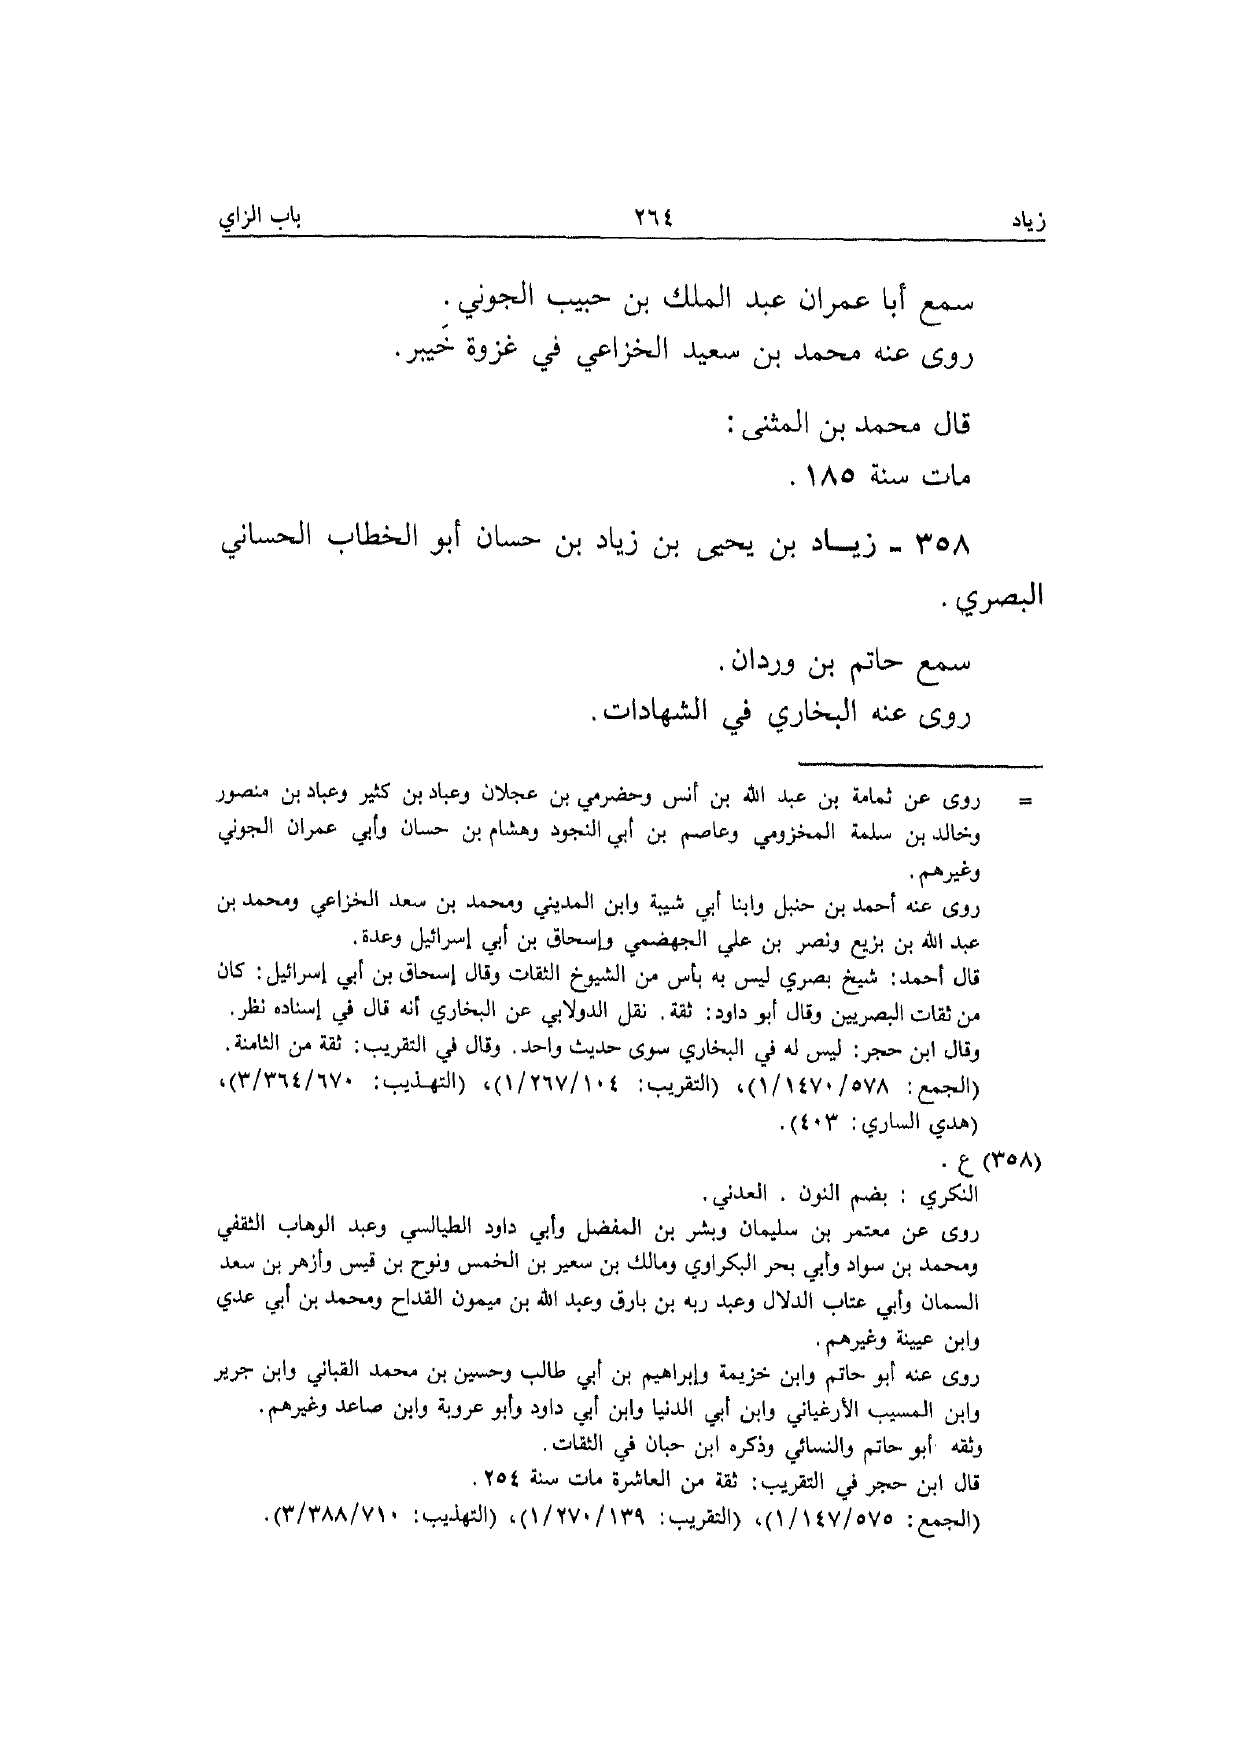 زياد ٢٦٤ باب الزاي
سمع أبا عمران عبد الملك بن حبيب الجوني .
روى عنه محمد بن سعيد الخزاعي في غزوة خَيبر .
قال محمد بن المثنى :
مات سنة ١٨٥ .
٣٥٨ - زيـاد بن يحيى بن زياد بن حسان أبو الخطاب الحساني
البصري .
سمع حاتم بن وردان .
روى عنه البخاري في الشهادات .
= روى عن ثمامة بن عبد الله بن أنس وحضرمي بن عجلان وعباد بن كثير وعباد بن منصور
وخالد بن سلمة المخزومي وعاصم بن أبي النجود وهشام بن حسان وأبي عمران الجوني
وغيرهم .
روى عنه أحمد بن حنبل وابنا أبي شيبة وابن المديني ومحمد بن سعد الخزاعي ومحمد بن
عبد الله بن بزيع ونصر بن علي الجهضمي وإسحاق بن أبي إسرائيل وعدة .
قال أحمد : شيخ بصري ليس به بأس من الشيوخ الثقات وقال إسحاق بن أبي إسرائيل : كان
من ثقات البصريين وقال أبو داود : ثقة . نقل الدولابي عن البخاري أنه قال في إسناده نظر .
وقال ابن حجر : ليس له في البخاري سوى حديث واحد . وقال في التقريب : ثقة من الثامنة .
(الجمع : ١/١٤٧٠/٥٧٨)، (التقريب : ١/٢٦٧/١٠٤)، (التهذيب : ٣/٣٦٤/٦٧٠)،
(هدي الساري : ٤٠٣) .
(٣٥٨) ع .
النكري : بضم النون . العدني .
روى عن معتمر بن سليمان وبشر بن المفضل وأبي داود الطيالسي وعبد الوهاب الثقفي
ومحمد بن سواد وأبي بحر البكراوي ومالك بن سعير بن الخمس ونوح بن قيس وأزهر بن سعد
السمان وأبي عتاب الدلال وعبد ربه بن بارق وعبد الله بن ميمون القداح ومحمد بن أبي عدي
وابن عيينة وغيرهم .
روى عنه أبو حاتم وابن خزيمة وإبراهيم بن أبي طالب وحسين بن محمد القباني وابن جرير
وابن المسيب الأرغياني وابن أبي الدنيا وابن أبي داود وأبو عروبة وابن صاعد وغيرهم .
وثقه أبو حاتم والنسائي وذكره ابن حبان في الثقات .
قال ابن حجر في التقريب : ثقة من العاشرة مات سنة ٢٥٤ .
(الجمع : ١/١٤٧/٥٧٥)، (التقريب : ١/٢٧٠/١٣٩)، (التهذيب : ٣/٣٨٨/٧١٠).